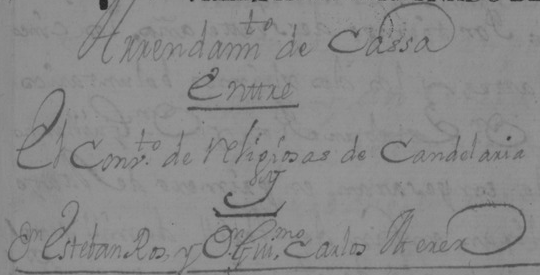 Arrendam.to de Cassa
Enttre
El Conv.to de religiosas de Candelaria
Y
Dn Esteban Ros, y Dn Gui.mo Carlos